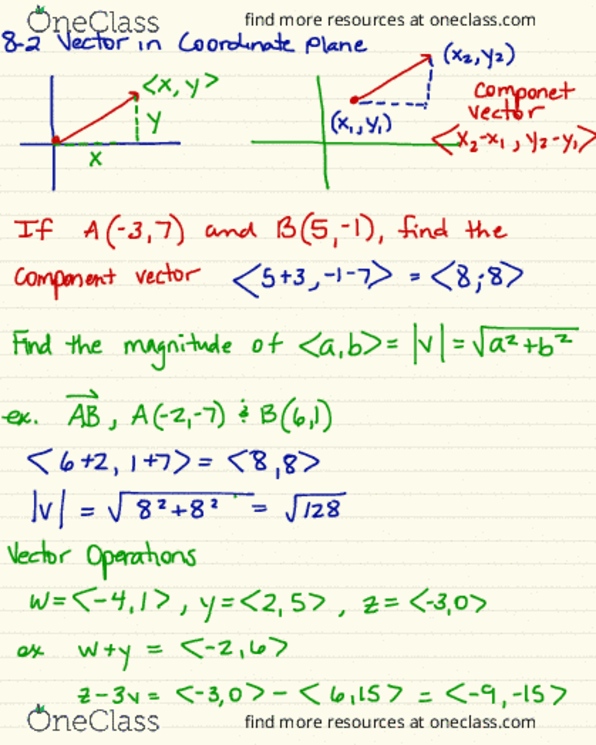 OneClass find more resources at oneclass.com
8-2 Vector in Coordinate Plane
<x, y>
y
x
(x₂, y₂)
(x₁, y₁)
Componet
vector
<x₂-x₁, y₂-y₁>
If A(-3,7) and B(5,-1), find the
Component vector <5+3, -1-7> = <8,-8>
Find the magnitude of <a,b> = |v| = √a²+b²
ex. AB, A(-2,-7) & B(6,1)
<6+2, 1+7> = <8,8>
|v| = √8²+8² = √128
Vector Operations
w=<-4,1>, y=<2,5>, z=<-3,0>
ex w+y = <-2,6>
z-3v = <-3,0> - <6,15> = <-9,-15>
OneClass find more resources at oneclass.com